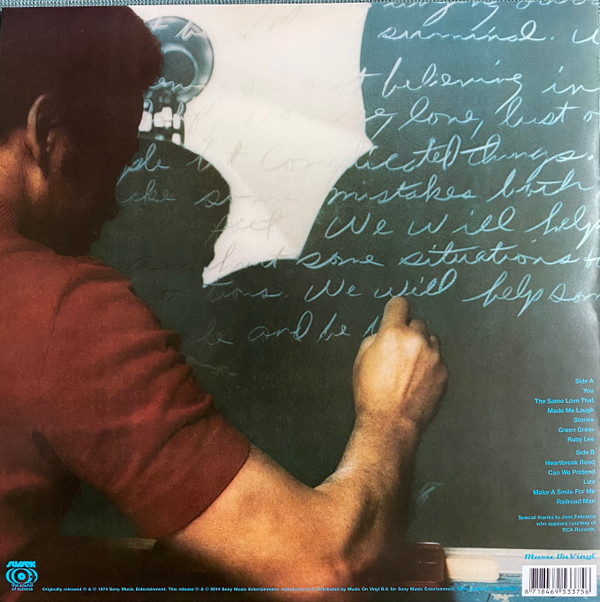 suminal. U
believing in
long, lust o
ple but complicated things.
ke some mistakes both
self We will help
hand some situations to
tions. We will help som
be and be
Side A
You
The Same Love That
Made Me Laugh
Stories
Green Grass
Ruby Lee
Side B
Heartbreak Road
Can We Pretend
Liza
Make A Smile For Me
Railroad Man
Special thanks to Jose Feliciano
who appears courtesy of
RCA Records.
Music On Vinyl
SUSSEX
the sound
of success
Originally released ℗ & © 1974 Sony Music Entertainment. This release ℗ & © 2014 Sony Music Entertainment. Manufactured & distributed by Music On Vinyl B.V. for Sony Music Entertainment.
8 718469 533756